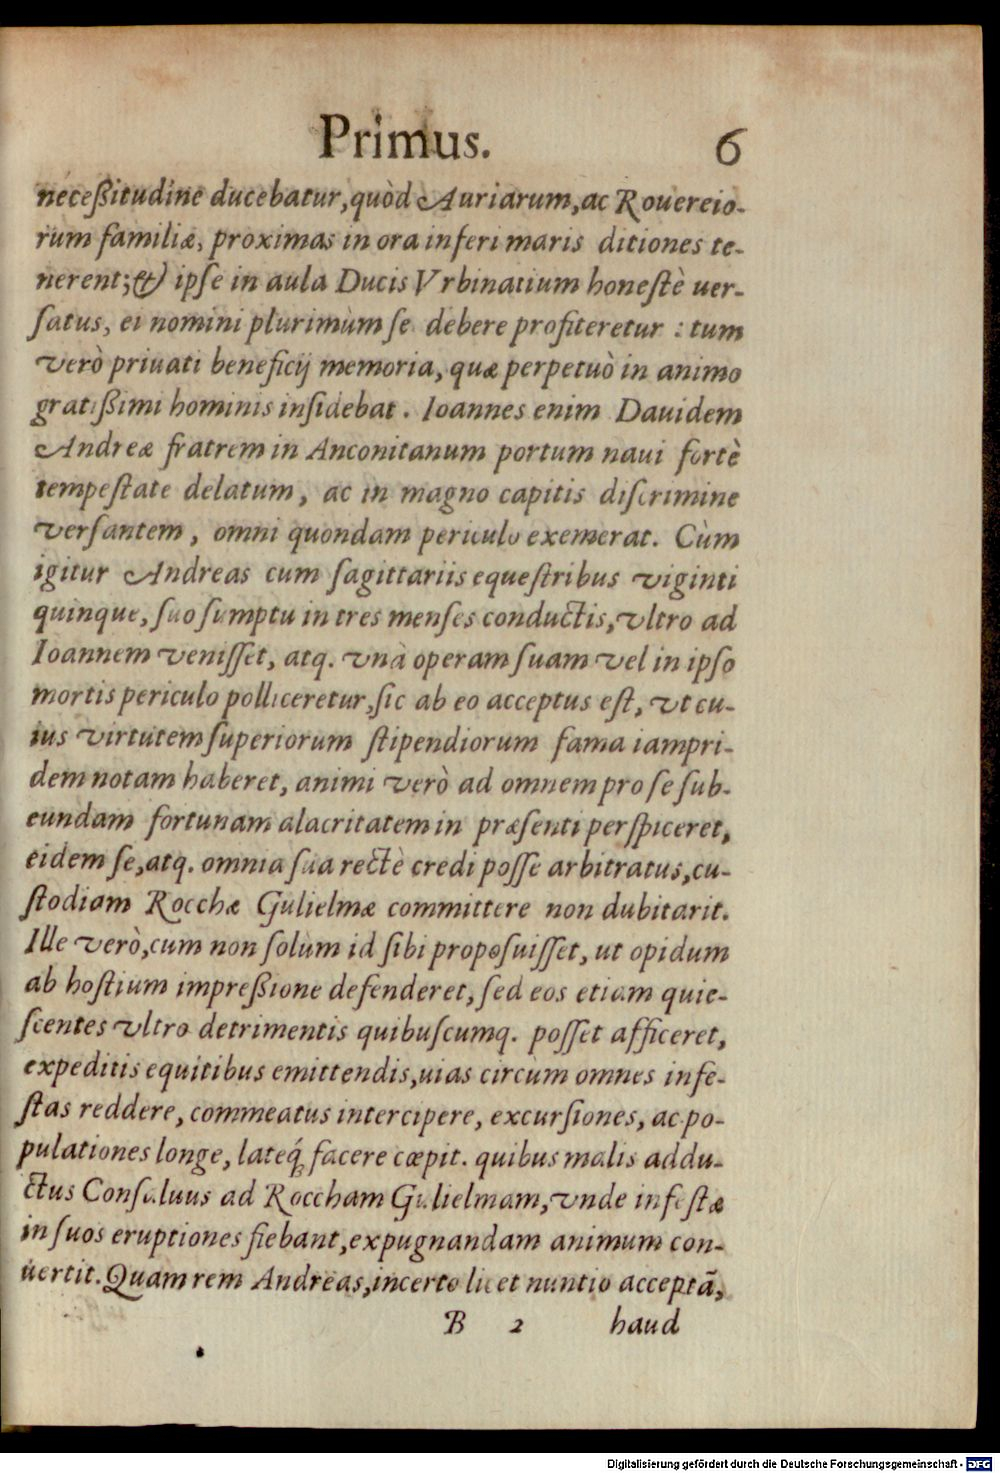 Primus. 6
neceßitudine ducebatur, quòd Auriarum, ac Rouereio-
rum familiæ, proximas in ora inferi maris ditiones te-
nerent; & ipse in aula Ducis Vrbinatium honestè uer-
satus, ei nomini plurimùm se debere profiteretur : tum
verò priuati beneficij memoria, quæ perpetuò in animo
gratißimi hominis insidebat. Ioannes enim Dauidem
Andreæ fratrem in Anconitanum portum naui fortè
tempestate delatum, ac in magno capitis discrimine
versantem, omni quondam periculo exemerat. Cùm
igitur Andreas cum sagittariis equestribus viginti
quinque, suo sumptu in tres menses conductis, vltro ad
Ioannem venisset, atq. vnà operam suam vel in ipso
mortis periculo polliceretur, sic ab eo acceptus est, vt cu-
ius virtutem superiorum stipendiorum fama iampri-
dem notam haberet, animi verò ad omnem pro se sub-
eundam fortunam alacritatem in præsenti perspiceret,
eidem se, atq. omnia sua rectè credi posse arbitratus, cu-
stodiam Rocchæ Gulielmæ committere non dubitarit.
Ille verò, cum non solùm id sibi proposuisset, ut opidum
ab hostium impreßione defenderet, sed eos etiam quie-
scentes vltro detrimentis quibuscumq. posset afficeret,
expeditis equitibus emittendis, uias circùm omnes infe-
stas reddere, commeatus intercipere, excursiones, ac po-
pulationes longe, lateq́; facere cœpit. quibus malis addu-
ctus Consaluus ad Roccham Gulielmam, vnde infestæ
in suos eruptiones fiebant, expugnandam animum con-
uertit. Quam rem Andreas, incerto licet nuntio acceptā,
B 2 haud
Digitalisierung gefördert durch die Deutsche Forschungsgemeinschaft - DFG